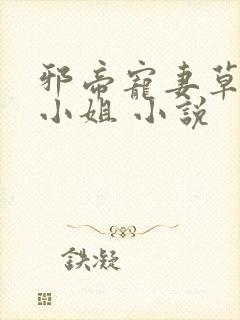 邪帝寵妻草
小姐 小說
鉄凝